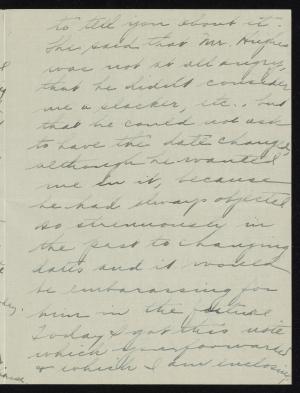 to tell you about it.
She said that Mr. Hughes
was not at all angry,
that he didn't consider
me a slacker, etc., but
that he could not ask
to have the date changed,
although he wanted
me in it, because
he had always objected
so strenuously in
the past to changing
dates and it would
be embarassing for
him in the future
Today I got this note
which you forwarded
& which I am enclosing